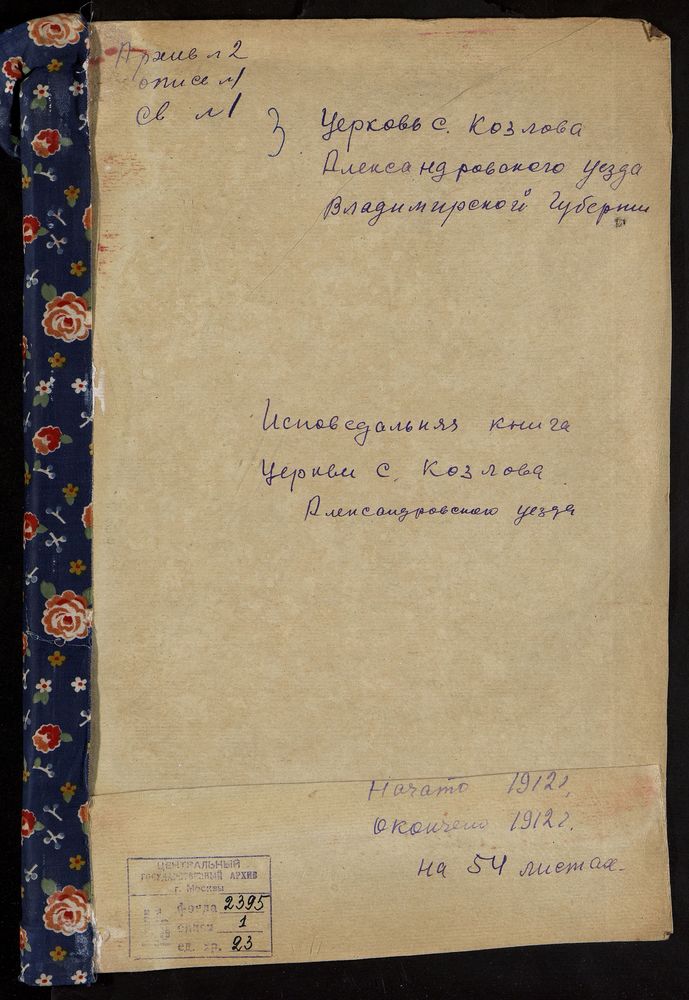 Архив № 2
описе № 1
св № 1
Церковь с. Козлова
Александровского уезда
Владимирской Губернии
Исповедальная книга
Церкви с. Козлова
Александровского уезда
Начато 1912 г.
Окончено 1912 г.
на 54 листах.
ЦЕНТРАЛЬНЫЙ
ГОСУДАРСТВЕННЫЙ АРХИВ
г. Москвы
фонда 2395
описи 1
ед. хр. 23